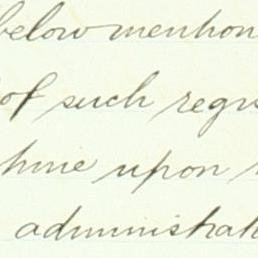 below mention
of such regis
hine upon
administrat